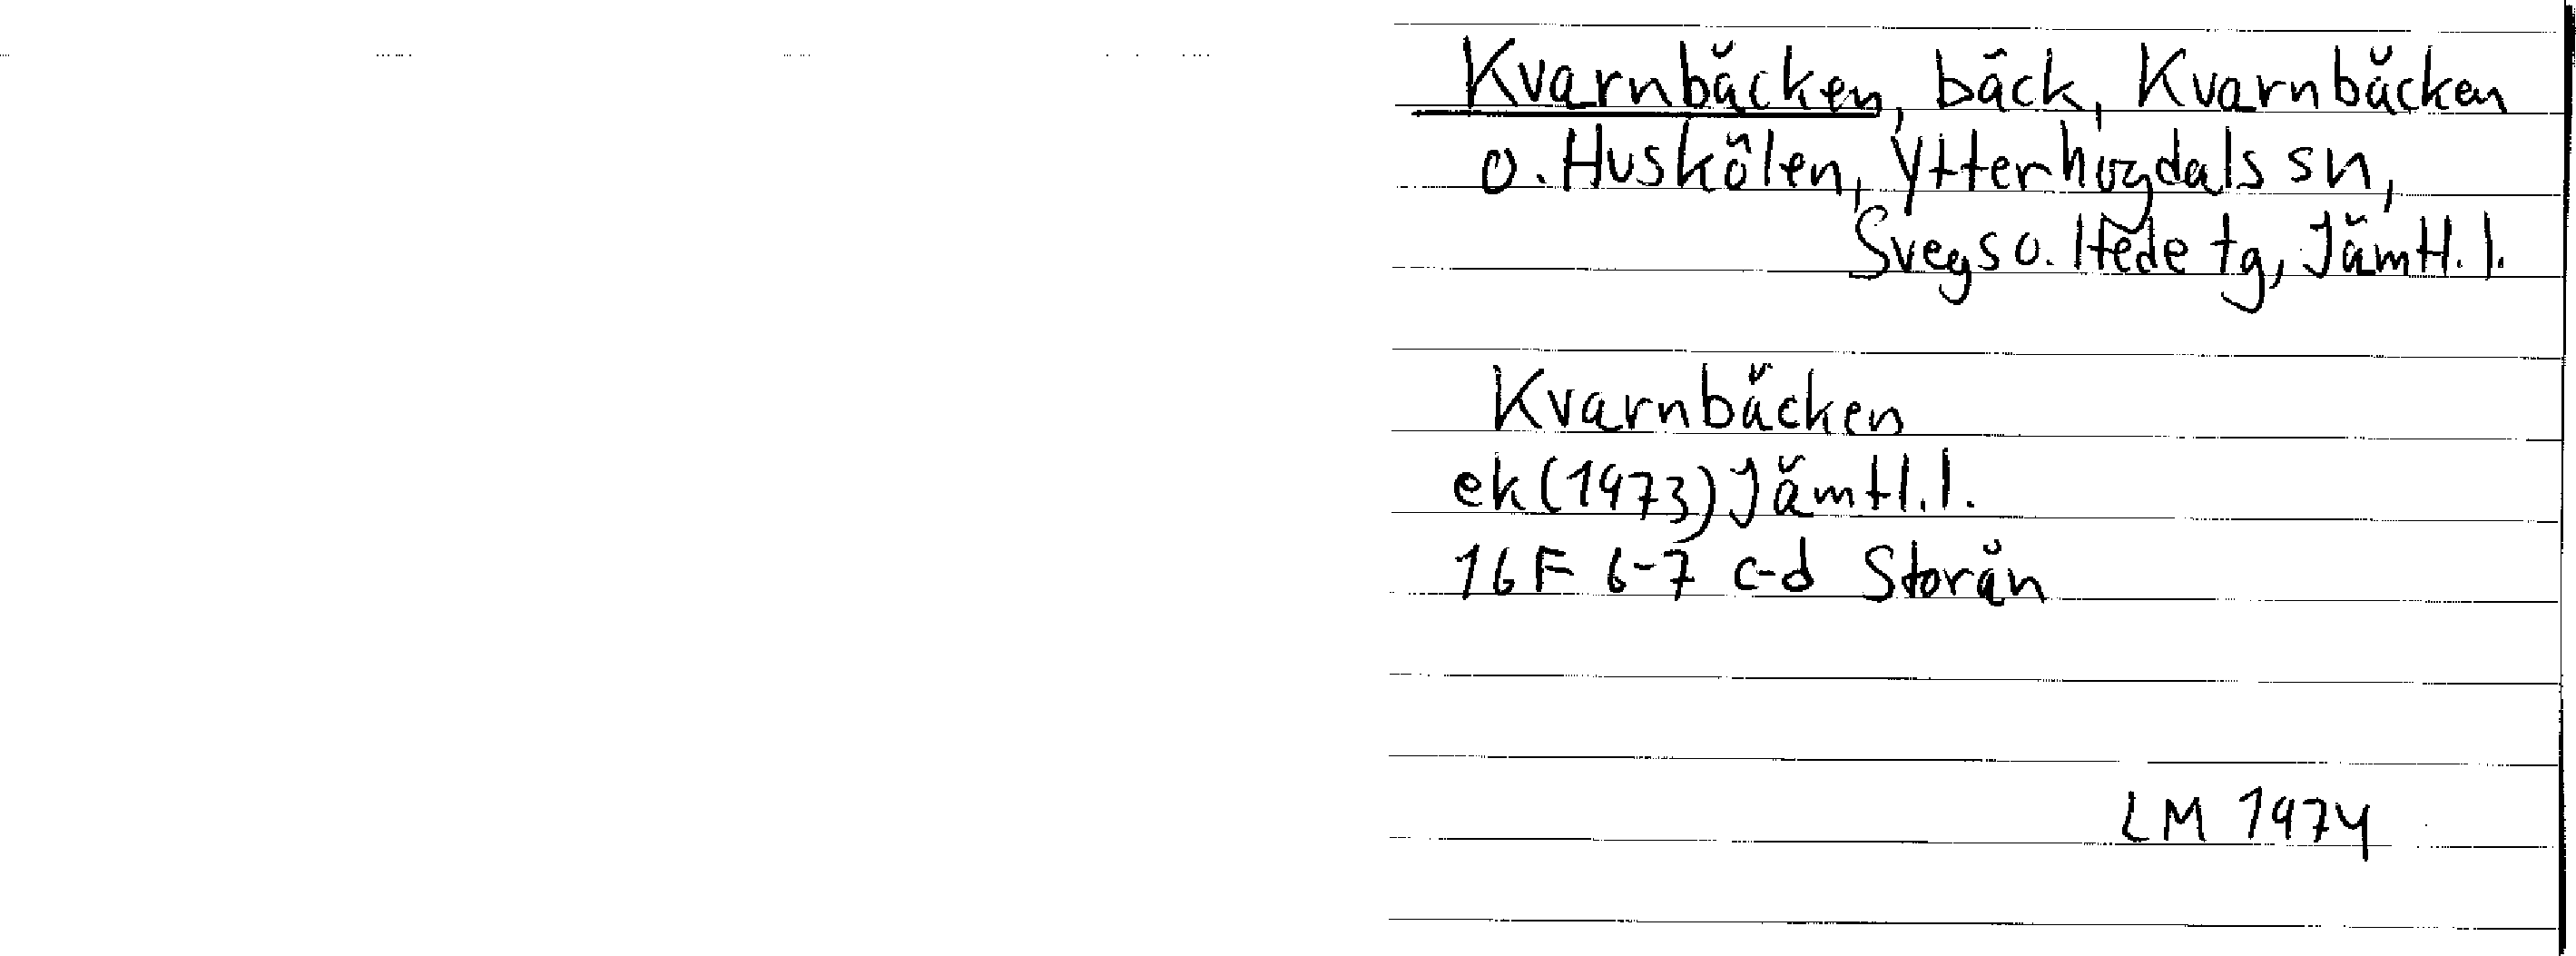 Kvarnbäcken, bäck, Kvarnbäcken
o. Huskölen, Ytterhogdals sn,
Svegs o. Hede tg, Jämtl. l.
Kvarnbäcken
ek (1973) Jämtl. l.
16 F 6-7 c-d Storån
LM 1974